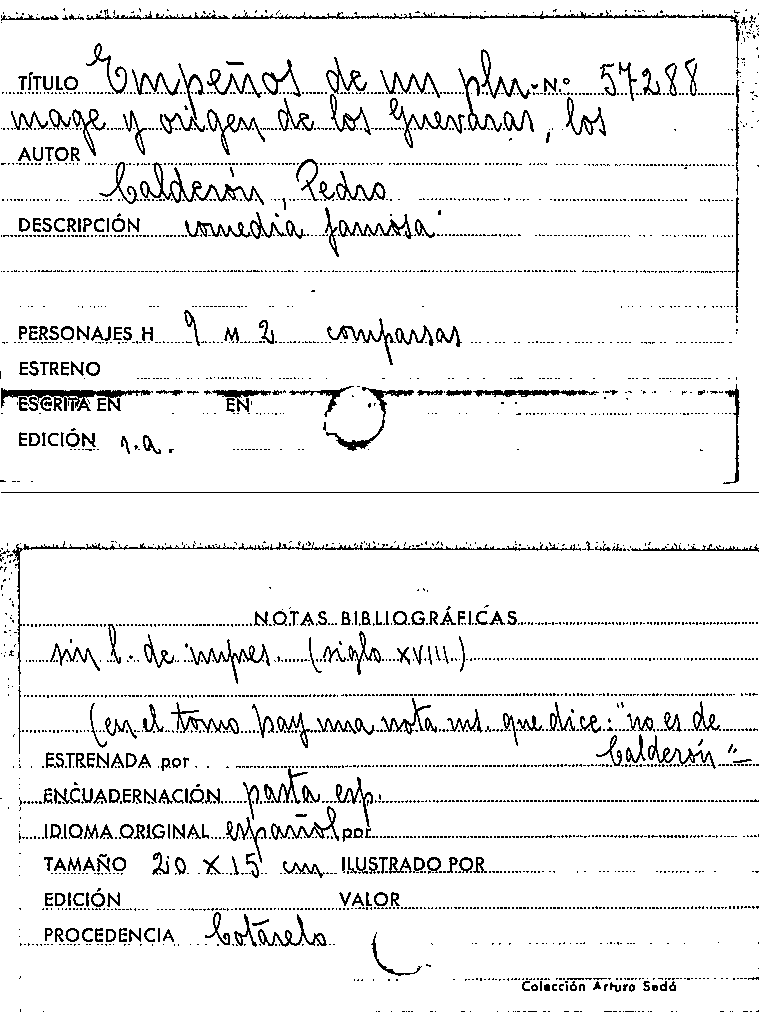 TÍTULO Empeños de un plu- N.º 57288
mage y origen de los Guevaras, los
AUTOR
Calderón, Pedro
DESCRIPCIÓN comedia famosa
PERSONAJES H 9 M 2 comparsas
ESTRENO
ESCRITA EN EN
EDICIÓN s.a.
NOTAS BIBLIOGRÁFICAS
sin l. de impres. (siglo XVIII)
(en el tomo hay una nota ms. que dice: "no es de
Calderón"
ESTRENADA por
ENCUADERNACIÓN pasta esp.
IDIOMA ORIGINAL español por
TAMAÑO 20 X 15 cm ILUSTRADO POR
EDICIÓN VALOR
PROCEDENCIA Cotarelo
Colección Arturo Sedó